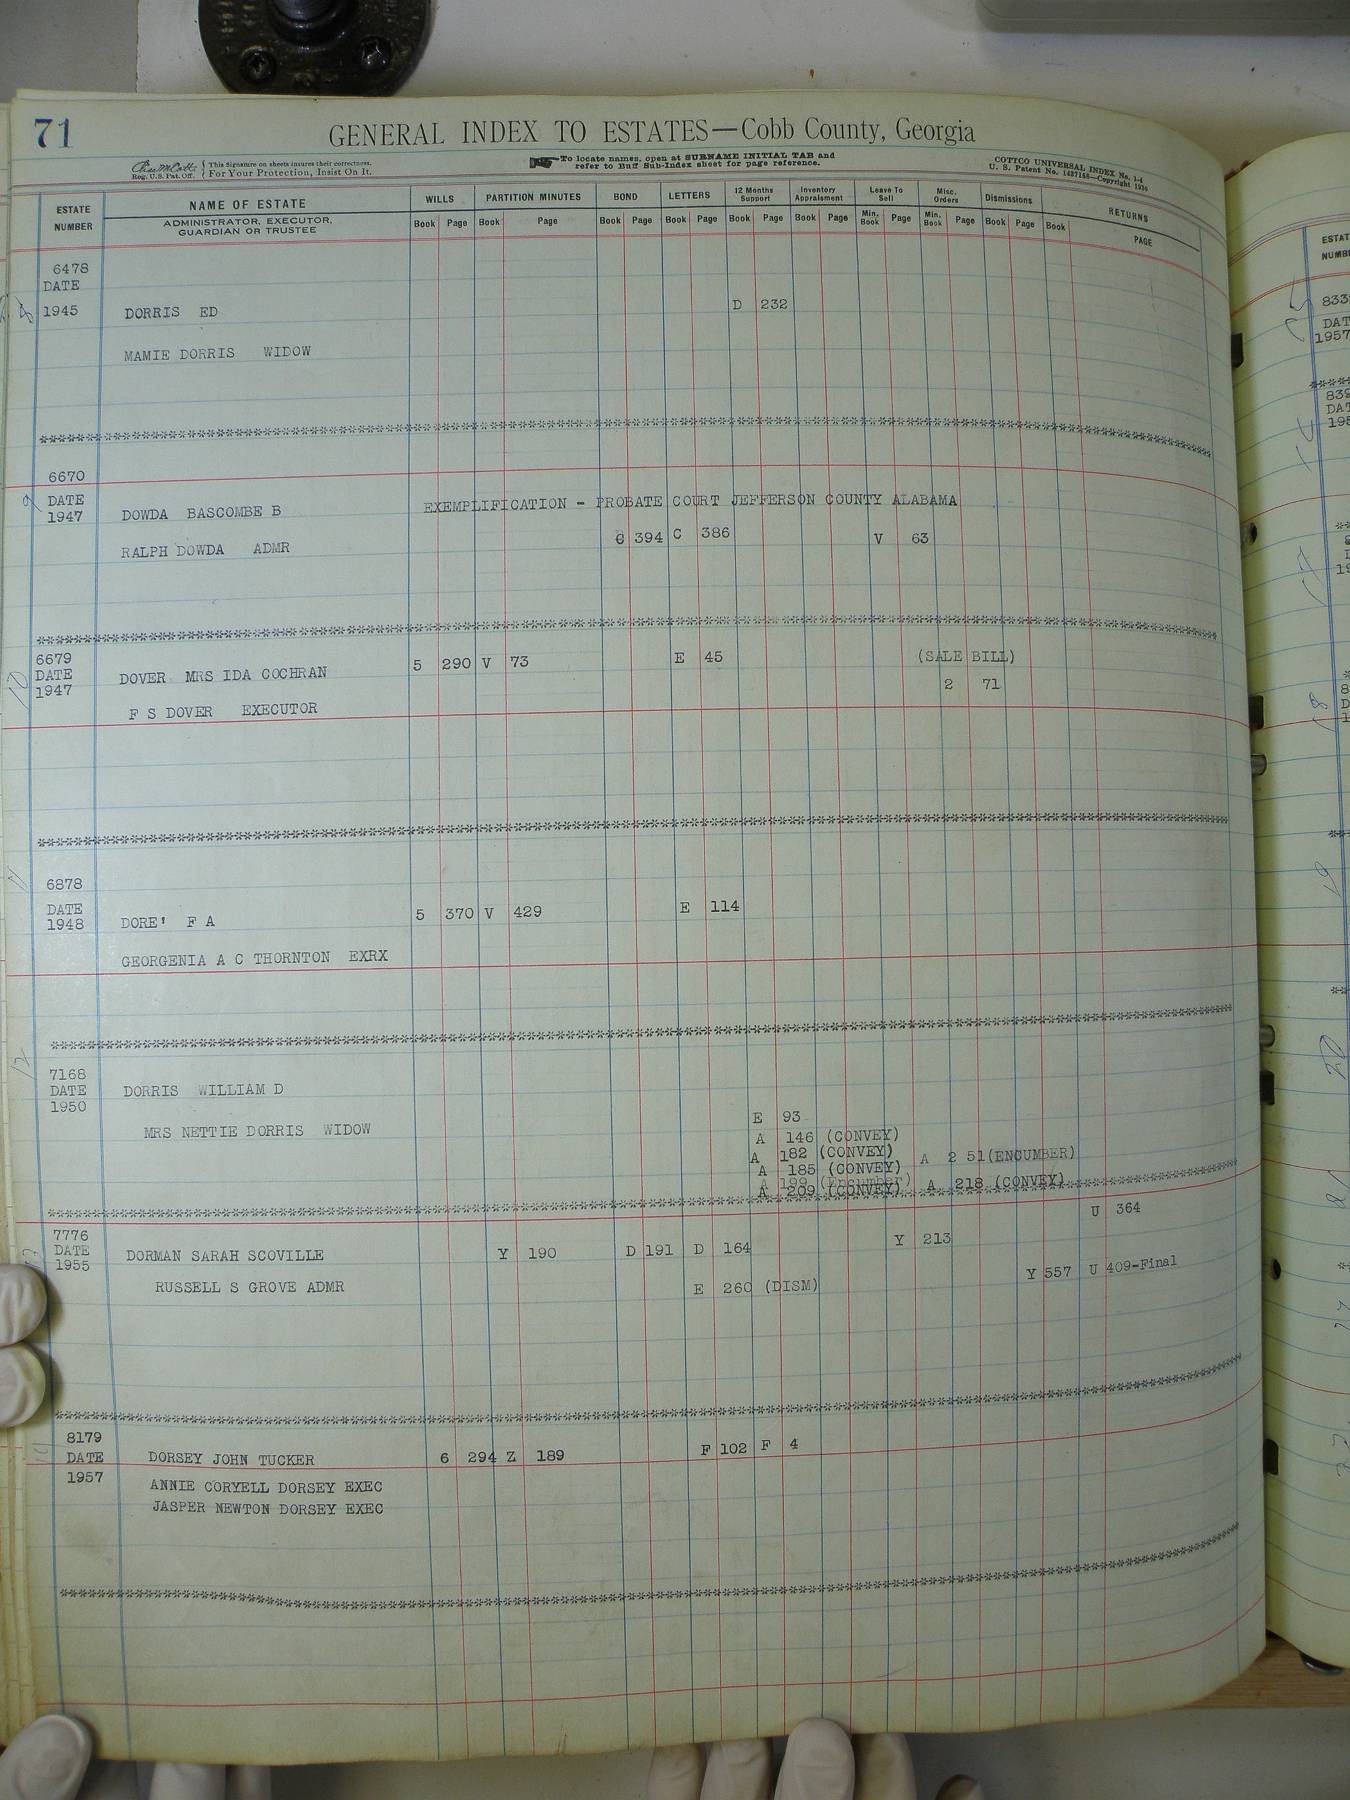 71
GENERAL INDEX TO ESTATES—Cobb County, Georgia
Reg. U.S. Pat. Off.
This Signature on sheets insures their correctness.
For Your Protection, Insist On It.
To locate names, open at SURNAME INITIAL TAB and
refer to Buff Sub-Index sheet for page reference.
COTTCO UNIVERSAL INDEX No. 1-4
U. S. Patent No. 1437168—Copyright 1930
ESTATE NUMBER
NAME OF ESTATE
ADMINISTRATOR, EXECUTOR, GUARDIAN OR TRUSTEE
WILLS PARTITION MINUTES BOND LETTERS 12 Months Support Inventory Appraisment Leave To Sell Misc. Orders Dismissions RETURNS
Book Page Book Page Book Page Book Page Book Page Book Page Min. Book Page Min. Book Page Book Page Book PAGE
6478
DATE
1945 DORRIS ED D 232
MAMIE DORRIS WIDOW
6670
DATE
1947 DOWDA BASCOMBE B EXEMPLIFICATION - PROBATE COURT JEFFERSON COUNTY ALABAMA
RALPH DOWDA ADMR C 394 C 386 V 63
6679
DATE
1947
DOVER MRS IDA COCHRAN 5 290 V 73 E 45 (SALE BILL)
2 71
F S DOVER EXECUTOR
6878
DATE
1948 DORE' F A 5 370 V 429 E 114
GEORGENIA A C THORNTON EXRX
7168
DATE
1950
DORRIS WILLIAM D
MRS NETTIE DORRIS WIDOW
E 93
A 146 (CONVEY)
A 182 (CONVEY) A 2 51(ENCUMBER)
A 185 (CONVEY)
A 199 (Encumber)
A 209 (CONVEY) A 218 (CONVEY)
U 364
7776
DATE
1955
DORMAN SARAH SCOVILLE Y 190 D 191 D 164 Y 213
RUSSELL S GROVE ADMR E 260 (DISM) Y 557 U 409-Final
8179
DATE
1957
DORSEY JOHN TUCKER 6 294 Z 189 F 102 F 4
ANNIE CORYELL DORSEY EXEC
JASPER NEWTON DORSEY EXEC